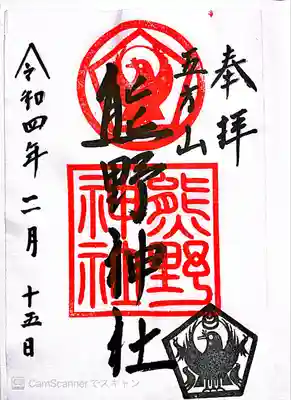 奉拝
五方山
熊野神社
熊野
神社
令和四年二月十五日
CamScannerでスキャン